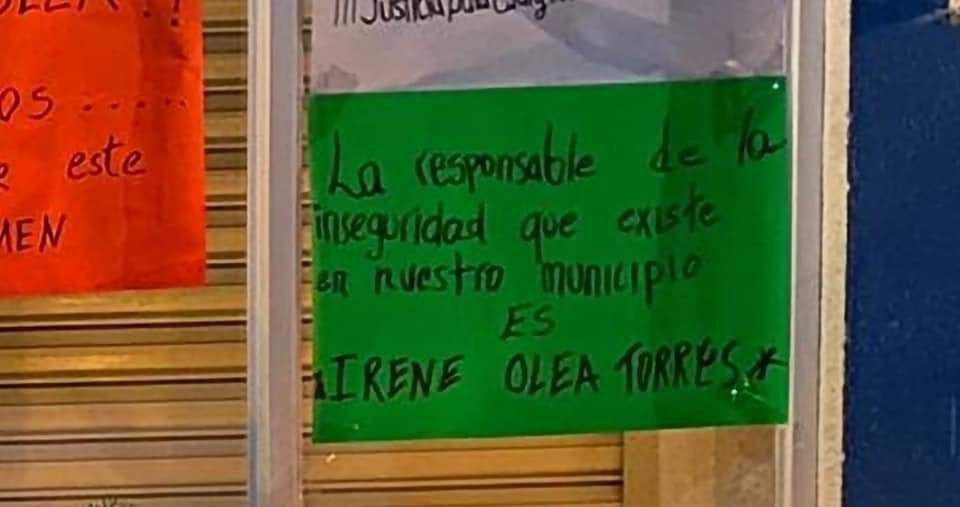 !!!Justicia para
os .....
este
MEN
La responsable de la
inseguridad que existe
en nuestro municipio
ES
*IRENE OLEA TORRES*